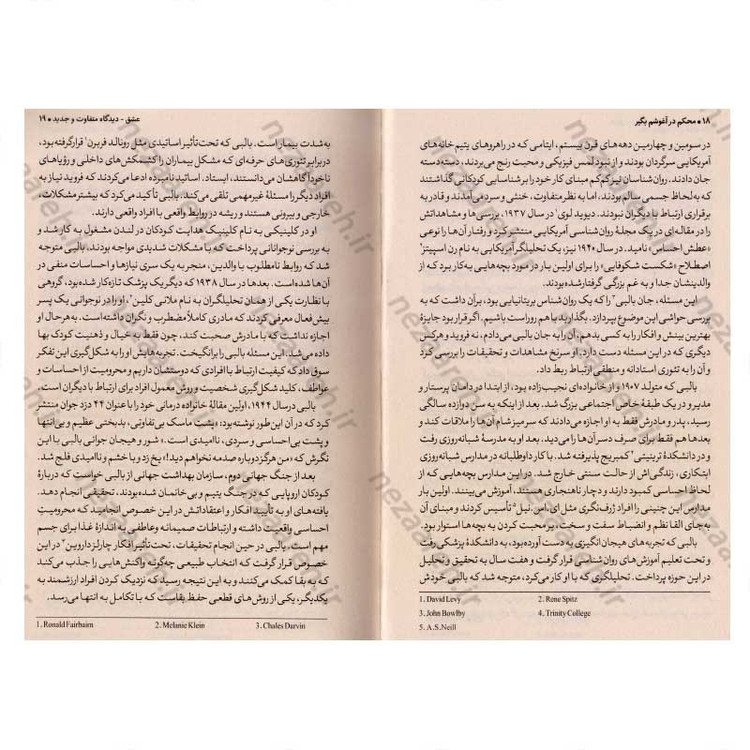 ۱۸ ● محکم در آغوشم بگیر
در سومین و چهارمین دهه‌های قرن بیستم، ایتامی که در راهروهای یتیم خانه‌های
آمریکایی سرگردان بودند و از نبود لمس فیزیکی و محبت رنج می‌بردند، دسته‌دسته
جان دادند. روان‌شناسان نیز کم‌کم مبنای کار خود را بر شناسایی کودکانی گذاشتند
که به‌لحاظ جسمی زنده بودند، اما به نظر متفاوت، خنثی و سرد می‌آمدند و قادر به
برقراری ارتباط با دیگران نبودند. دیوید لوی۱ در سال ۱۹۳۷، بررسی‌ها و مشاهداتش
را در مقاله‌ای در یک مجلۀ روان‌شناسی آمریکایی منتشر کرد و رفتار آن‌ها را نوعی
«عطش احساس» نامید. در سال ۱۹۴۰ نیز، یک تحلیلگر آمریکایی به نام رن اسپیتز۲
اصطلاح «شکست شکوفایی» را برای اولین بار در مورد بچه‌هایی به‌کار برد که از
والدینشان جدا و به غم بزرگی گرفتار شده بودند.
این مسئله، جان بالبی۳ را که یک روان‌شناس بریتانیایی بود، بر آن داشت که به
بررسی حواشی این موضوع بپردازد. بگذارید با هم روراست باشیم. اگر قرار بود جایزۀ
بهترین بینش و افکار را به کسی بدهم، آن را به جان بالبی می‌دادم، نه فروید و هرکس
دیگری که در این مسئله دست دارد. او سرنخ مشاهدات و تحقیقات را بررسی کرد
و آن را به تئوری استادانه و منطقی ارتباط ربط داد.
بالبی که متولد ۱۹۰۷ و از خانواده‌ای نجیب‌زاده بود، از ابتدا در دامان پرستار و
مدیر و در یک طبقۀ خاص اجتماعی بزرگ شد. بعد از اینکه به سن دوازده سالگی
رسید، پدر و مادرش فقط به او اجازه می‌دادند که سر میز شام آن‌ها را ملاقات کند و
بعدها هم فقط برای صرف دسر آن‌ها را می‌دید. بعد او به مدرسۀ شبانه‌روزی رفت
و در دانشکدۀ ترینیتی۴ کمبریج پذیرفته شد. با کار داوطلبانه در مدارس شبانه‌روزی
ابتکاری، زندگی‌اش از حالت سنتی خارج شد. در این مدارس بچه‌هایی که از
لحاظ احساسی کمبود دارند و دچار ناهنجاری هستند، آموزش می‌بینند. اولین بار
مدارس این چنینی را افراد ژرف‌نگری مثل ای.اس. نیل۵ تأسیس کردند و مبنای آن
به‌جای القا نظم و انضباط سفت و سخت، بر محبت کردن به بچه‌ها استوار بود.
بالبی که تجربه‌های هیجان‌انگیزی به دست آورده بود، به دانشکدۀ پزشکی رفت
و تحت تعلیم آموزش‌های روان‌شناسی قرار گرفت و هفت سال به تحقیق و تحلیل
در این حوزه پرداخت. تحلیلگری که با او کار می‌کرد، متوجه شد که بالبی خودش
1. David Levy 2. Rene Spitz
3. John Bowlby 4. Trinity College
5. A.S.Neill
عشق - دیدگاه متفاوت و جدید ● ۱۹
به شدت بیمار است. بالبی که تحت‌تأثیر اساتیدی مثل رونالد فربرن۱ قرار گرفته بود،
در برابر تئوری‌های حرفه‌ای که مشکل بیماران را کشمکش‌های داخلی و رؤیاهای
ناخودآگاهشان می‌دانستند، ایستاد. اساتید نامبرده ادعا می‌کردند که فروید نیاز به
افراد دیگر را مسئلۀ غیرمهمی تلقی می‌کند. بالبی تأکید می‌کرد که بیشتر مشکلات،
خارجی و بیرونی هستند و ریشه در روابط واقعی با افراد واقعی دارند.
او در کلینیکی به نام کلینیک هدایت کودکان در لندن مشغول به کار شد و
به بررسی نوجوانانی پرداخت که با مشکلات شدیدی مواجه بودند. بالبی متوجه
شد که روابط نامطلوب با والدین، منجر به یک سری نیازها و احساسات منفی در
آن‌ها شده است. بعدها در سال ۱۹۳۸ که دیگر یک پزشک تازه‌کار شده بود، گروهی
با نظارت یکی از همان تحلیلگران به نام ملانی کلین۲، او را در نوجوانی یک پسر
بیش فعال معرفی کردند که مادری کاملاً مضطرب و نگران داشته است. به هر حال او
اجازه نداشت که با مادرش صحبت کند، چون فقط به خیال و ذهنیت کودک بها
داده می‌شد. این مسئله بالبی را برانگیخت. تجربه‌هایش او را به شکل‌گیری این تفکر
سوق داد که کیفیت ارتباط با افرادی که دوستشان داریم و محرومیت از احساسات و
عواطف، کلید شکل‌گیری شخصیت و روش معمول افراد برای ارتباط با دیگران است.
بالبی در سال ۱۹۴۴، اولین مقالۀ خانواده درمانی خود را با عنوان ۴۴ دزد جوان منتشر
کرد که در آن این طور نوشته بود: «پشت ماسک بی‌تفاوتی، بدبختی عظیم و بی‌انتها
و پشت بی‌احساسی و سردی، ناامیدی است.» شور و هیجان جوانی بالبی با این
نگرش که «من هرگز دوباره صدمه نخواهم دید!» یخ زد و با خشم و ناامیدی فلج شد.
بعد از جنگ جهانی دوم، سازمان بهداشت جهانی از بالبی خواست که دربارۀ
کودکان اروپایی که در جنگ یتیم و بی‌خانمان شده بودند، تحقیقی انجام دهد.
یافته‌های او به تأیید افکار و اعتقاداتش در این خصوص انجامید که محرومیت
احساسی واقعیت داشته و ارتباطات صمیمانه وعاطفی به اندازۀ غذا برای جسم
مهم است. بالبی در حین انجام تحقیقات، تحت‌تأثیر افکار چارلز داروین۳ در این
خصوص قرار گرفت که انتخاب طبیعی چه‌گونه واکنش‌هایی را جذب می‌کند
که به بقا کمک می‌کنند و به این نتیجه رسید که نزدیک کردن افراد ارزشمند به
یکدیگر، یکی از روش‌های قطعی حفظ بقاست که با تکامل به انتها می‌رسد.
1. Ronald Fairbairn 2. Melanie Klein 3. Chales Darvin
nezaareh.ir